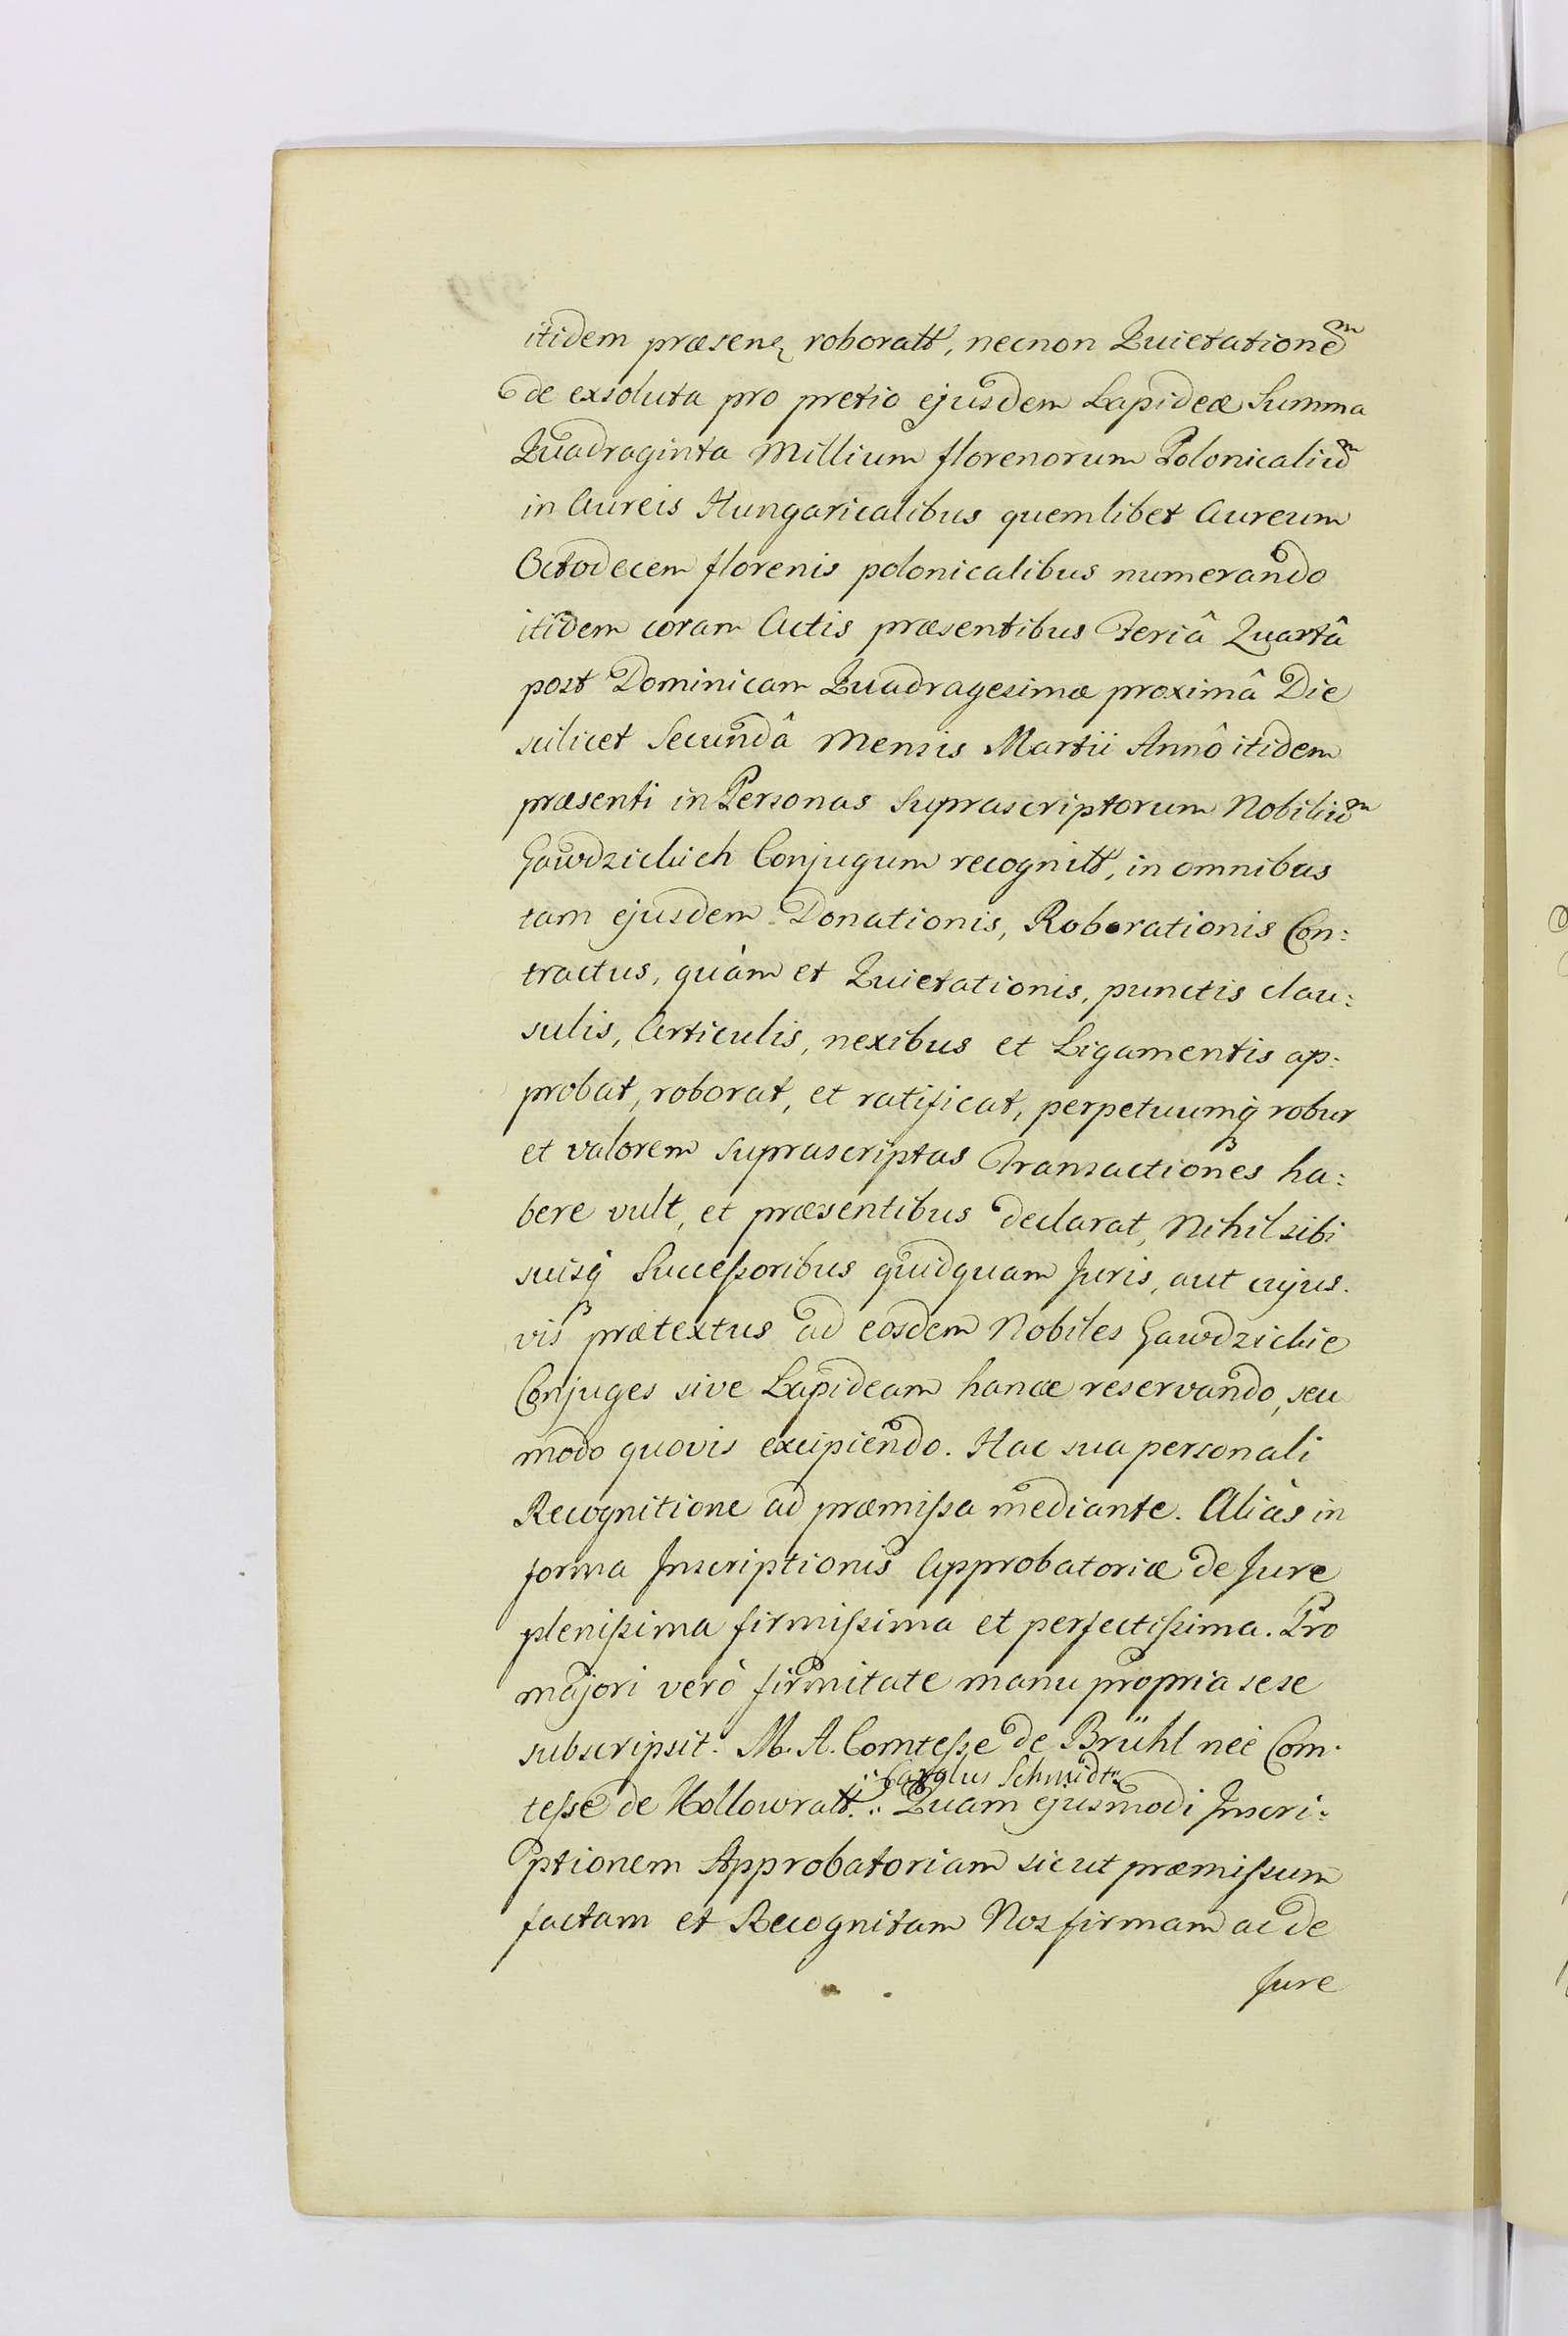 itidem præsenꝫ roboratt, necnon Quietationem
de exsoluta pro pretio ejusdem Lapideæ Summa
Quadraginta Millium florenorum Polonicalium
in Aureis Hungaricalibus quemlibet Aureum
Octodecem florenis polonicalibus numerando
itidem coram Actis præsentibus Feriâ Quartâ
post Dominicam Quadragesimæ proximâ Die
scilicet Secundâ Mensis Martii Annô itidem
præsenti in Personas Suprascriptorum Nobilium
Gawdzickich Conjugum recognitt, in omnibus
tam ejusdem Donationis, Roborationis Con:
tractus, quàm et Quietationis, punctis clau:
sulis, Articulis, nexibus et Ligamentis ap:
probat, roborat, et ratificat, perpetuumq̀ robur
et valorem suprascriptas Transactiones ha:
bere vult, et præsentibus declarat, Nihil sibi
suisq̀ Succeßoribus quidquam Juris, aut cujus.
vis prætextus ad eosdem Nobiles Gawdzickie
Conjuges sive Lapideam hancce reservando, seu
modo quovis excipiendo. Hac sua personali
Recognitione ad præmißa mediante. Aliàs in
forma Inscriptionis Approbatoriæ de Jure
plenißima firmißima et perfectißima. Pro
majori verò firmitate manu propria sese
subscripsit. M. A. Comteße de Brühl neé Com.
Carolus Schmidt
teße de Kollowratt. :: Quam ejusmodi Inscri:
ptionem Approbatoriam sicut præmißum
factam et Recognitam Nos firmam ac de
Jure